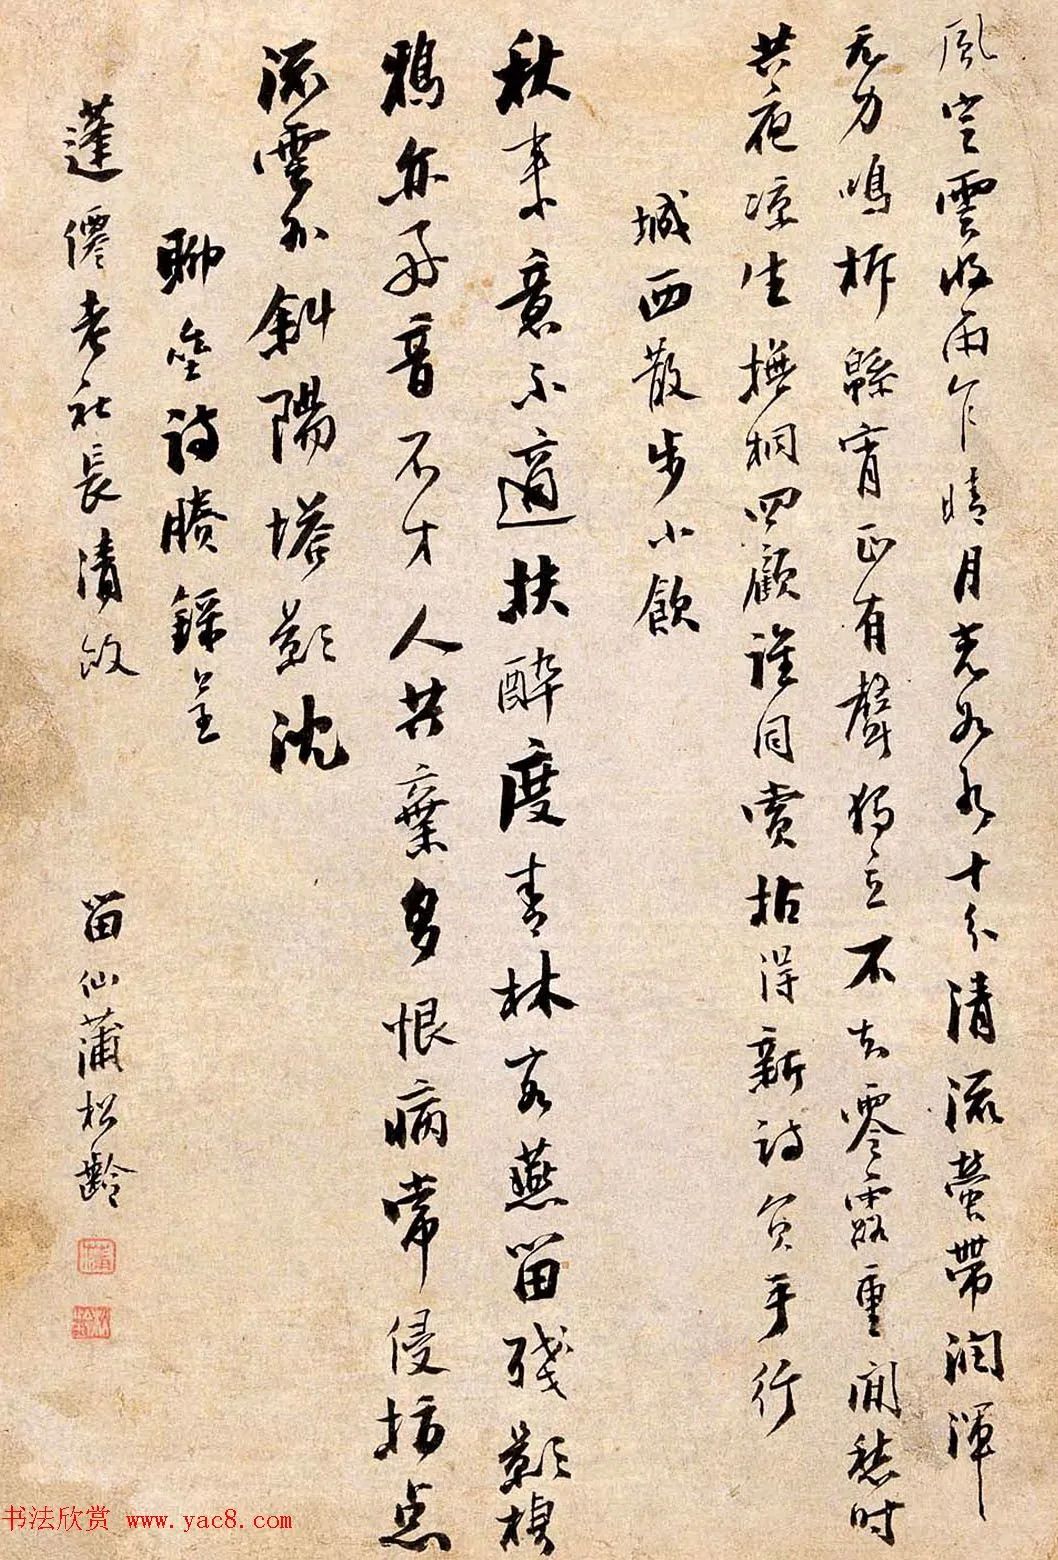 風定雲收雨乍晴月光如水十分清流螢帶潤渾
无力鳴柝緜宵正有聲獨立不知零露重閒愁時
共夜凉生撫桐四顧誰同賞拈得新詩負手行
城西散步小飲
秋来意不適扶醉度青林客燕留殘影棲
鴉亦好音不才人共棄多恨病常侵指点
流雲外斜陽塔影沈
聊齋詩賸錄呈
蓬僊老社長清政 留仙蒲松齡
书法欣赏 www.yac8.com